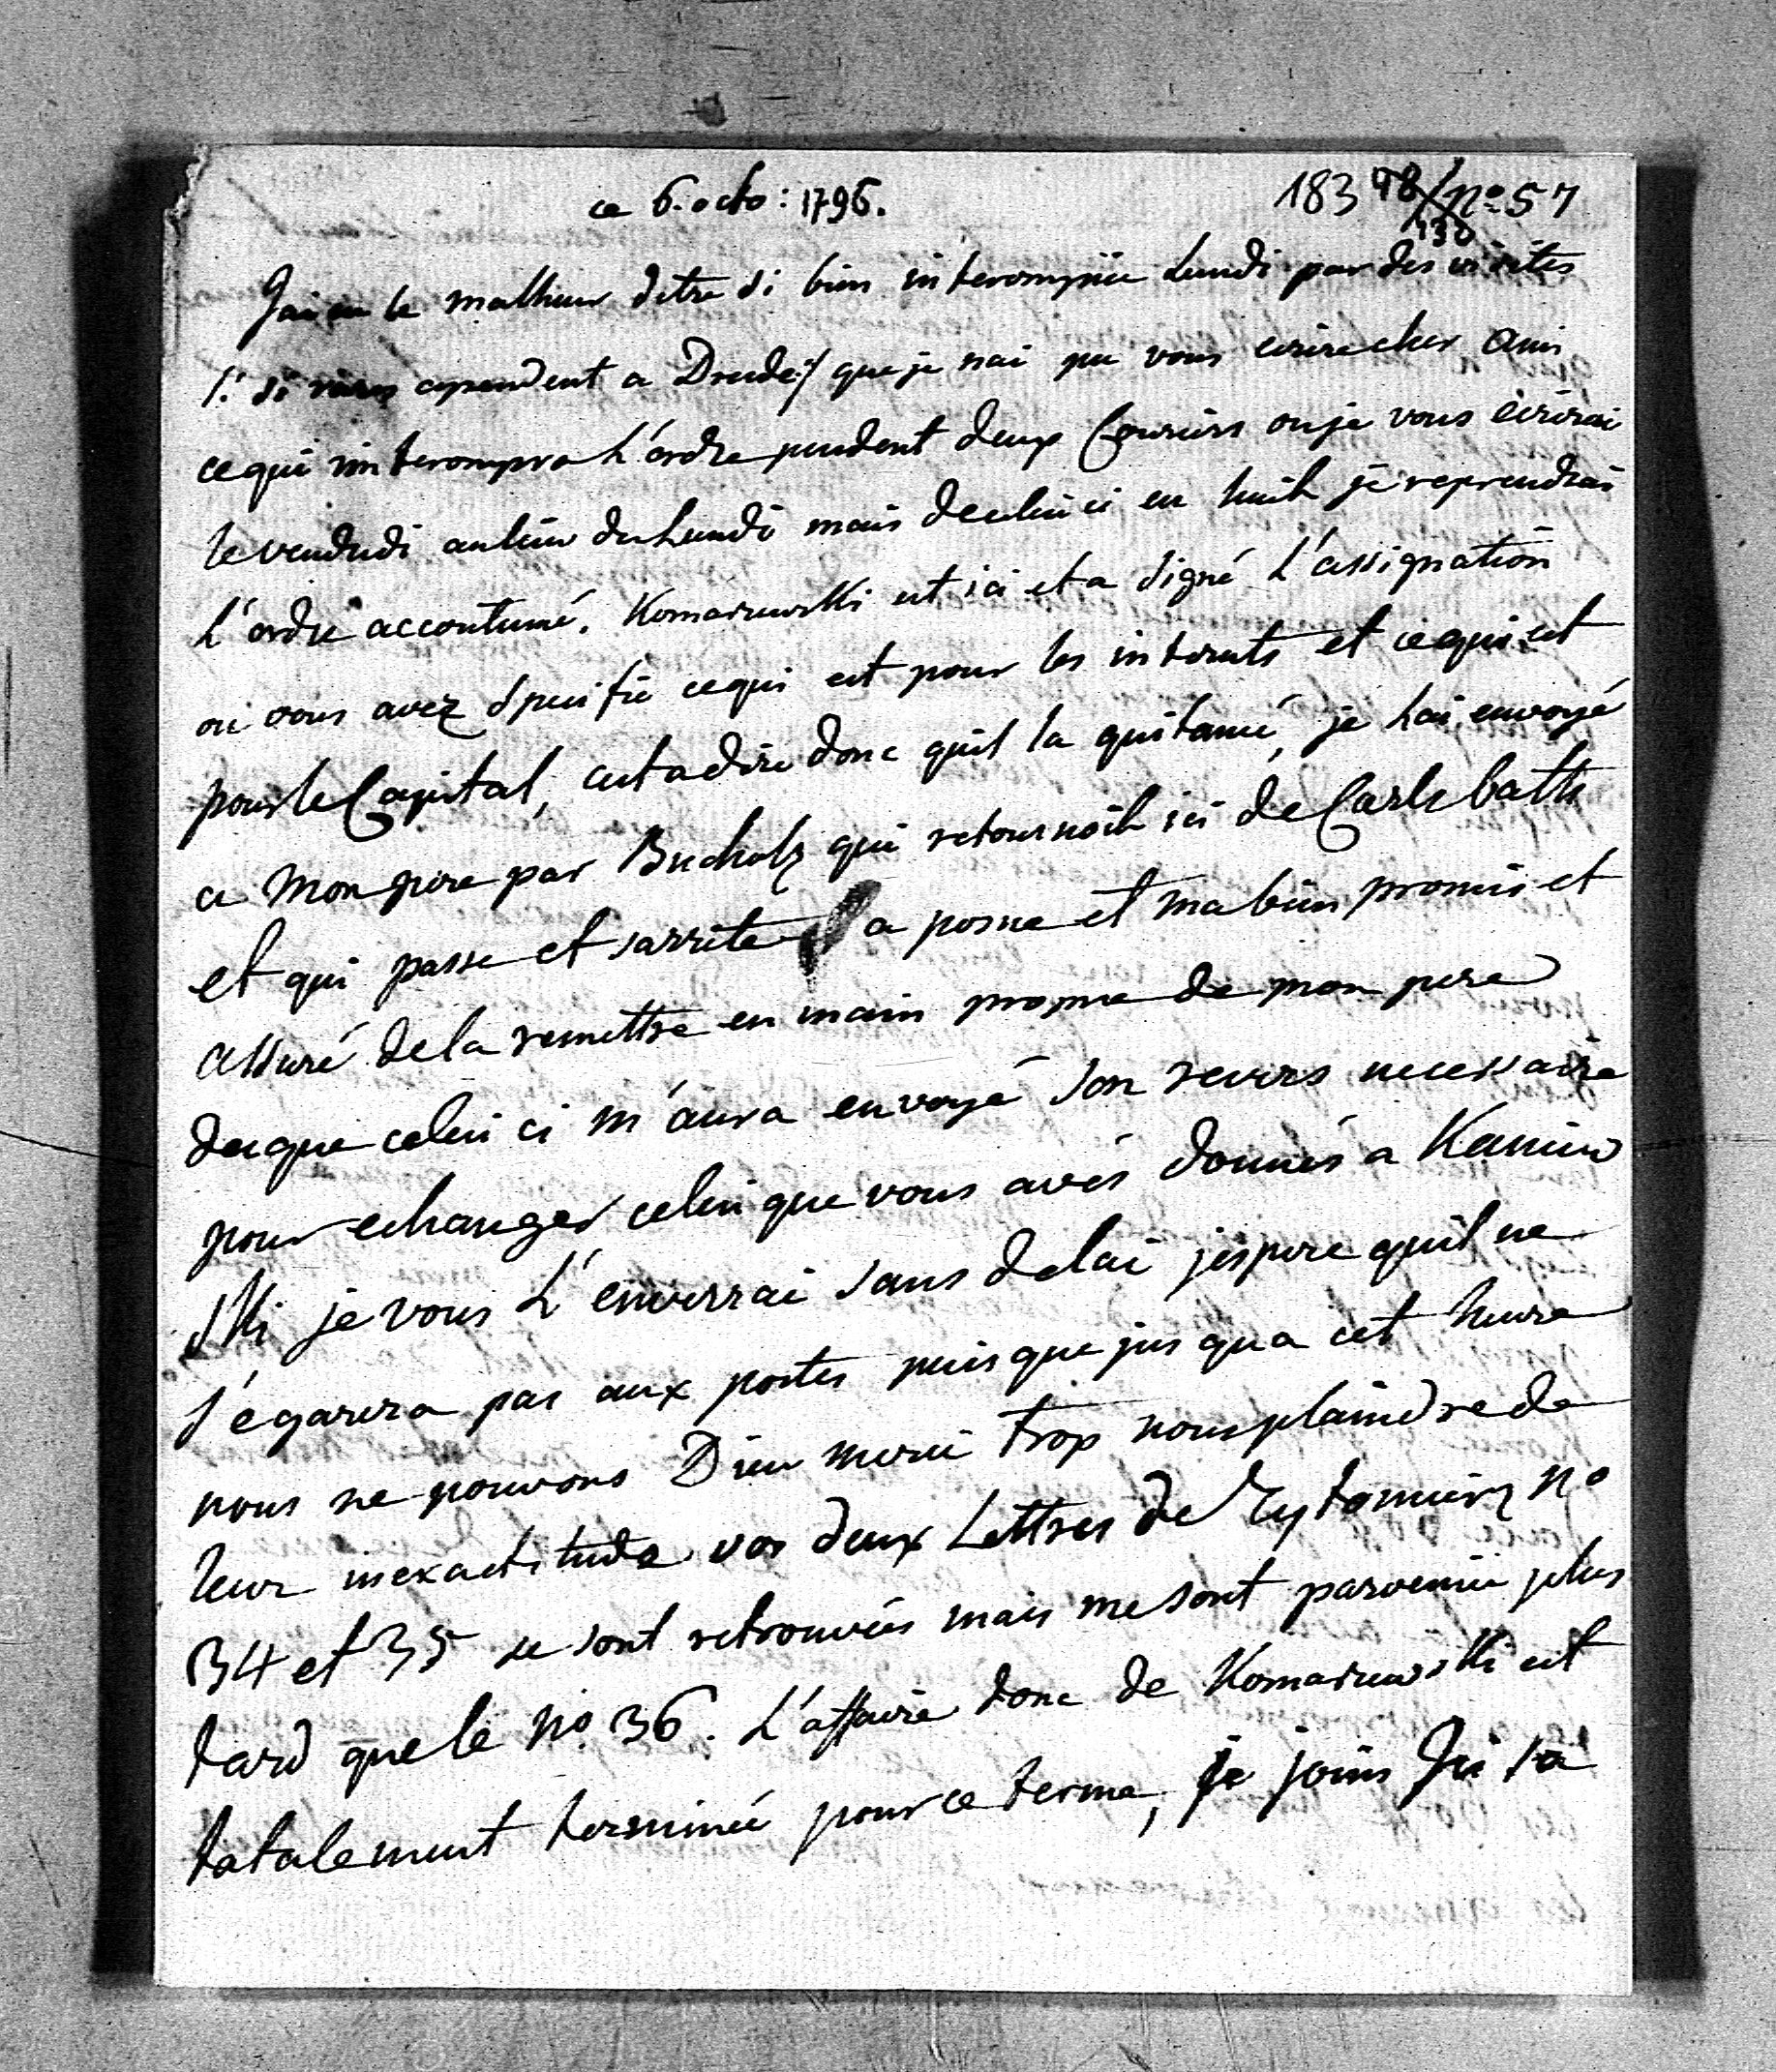 ce 6. octo: 1796.
183 98/no 57
130
Jai eu le malheur detre si bien interompüe Lundi par des visites
/: si rares cependent a Dresde :/ que je nai pu vous ecrire cher Ami
ce qui interompra L'ordre pendent deux Couriers ou je vous écrirai
le vendredi aulieu du Lundi mais decelui ci en huit je reprendrai
L'ordre accoutumé. Komarzewski est ici et a signé L'assignation
ou vous avez spécifié cequi est pour les interets et cequi est
pour le Capital, cestadire donc quil la quitancé, je lai envoyé
a Mon pere par Bucholz qui retournoit ici de Carlsbath
et qui passe et sarrete a posne et ma bien promis et
assuré de la remettre en main propre de mon pere
desque celui ci m'aura envoyé son revers necessaire
pour echanger celui que vous avés donnés a Kamin
ski je vous L'enverrai sans delai jespere quil ne
s'egarera pas aux postes puis que jus qua cet heure
nous ne pouvons Dieu merci trop nous plaindre de
leur inexactitude vos deux Lettres de Zytomierz no
34 et 35 se sont retrouvées mais me sont parvenüe plus
tard que le No. 36. L'affaire donc de Komarzewski est
totalement terminée pour ce terme, je joins Ici sa